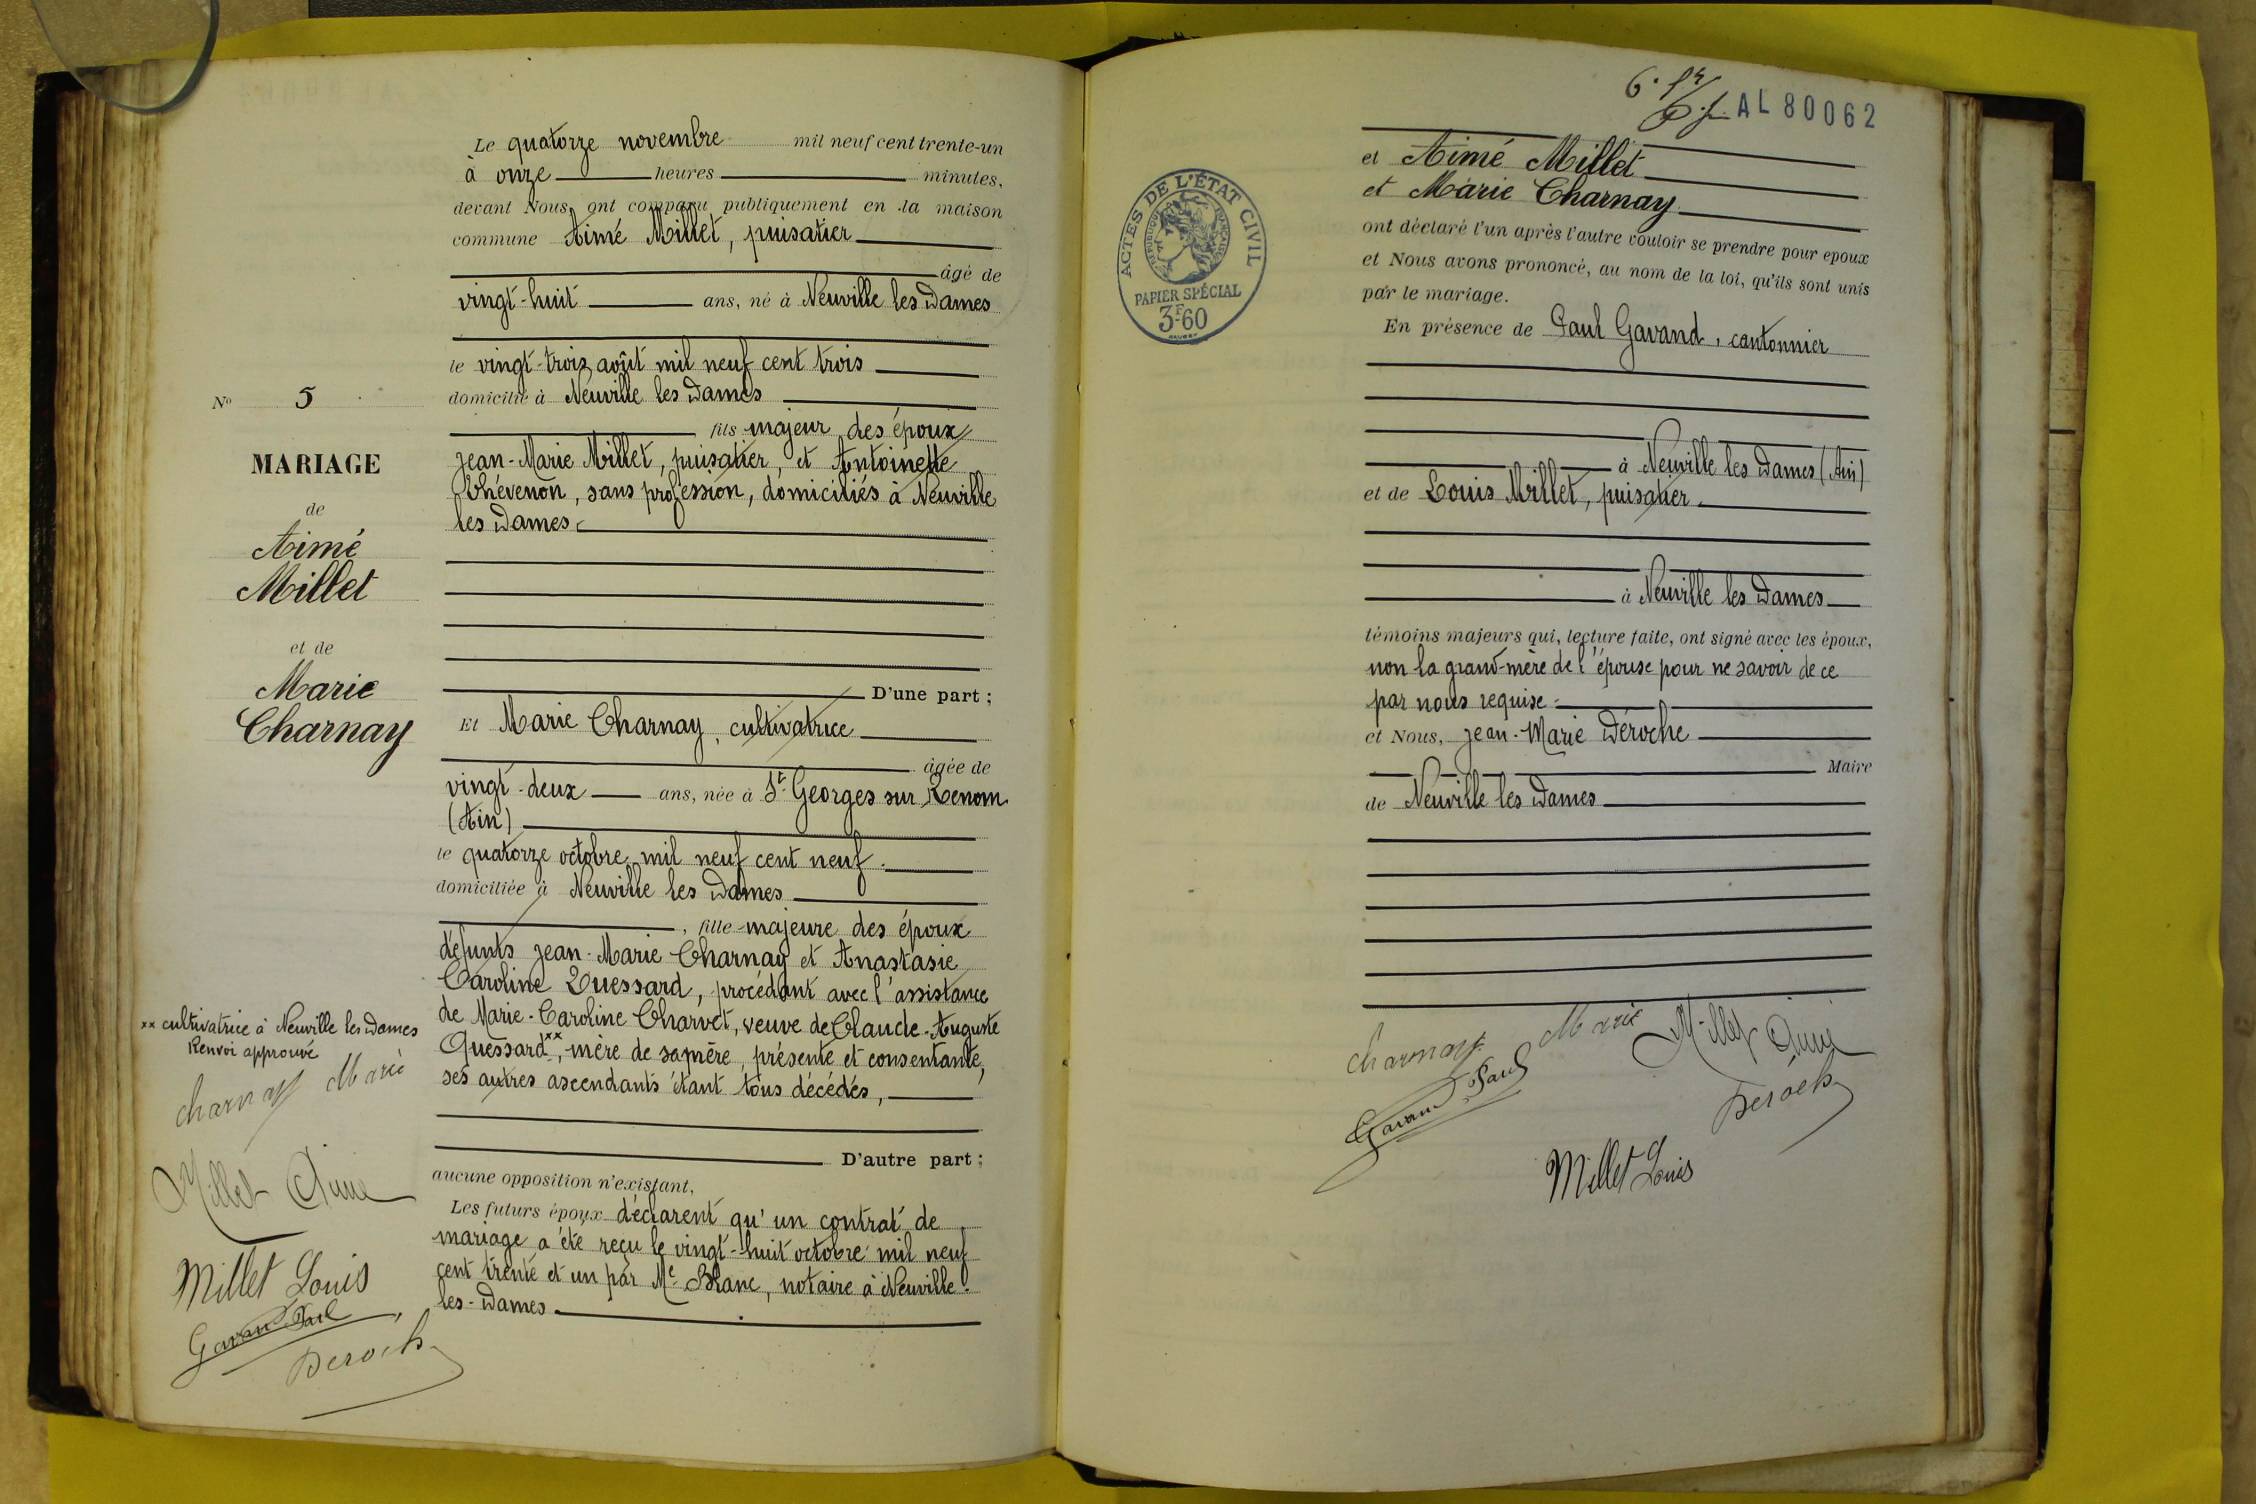 Le quatorze novembre mil neuf cent trente-un
à onze heures minutes,
devant Nous, ont comparu publiquement en la maison
commune Aimé Millet, puisatier
âgé de
vingt-huit ans, né à Neuville les Dames
le vingt-trois août mil neuf cent trois
domicilié à Neuville les Dames
fils majeur des époux
Jean-Marie Millet, puisatier, et Antoinette
Thévenon, sans profession, domiciliés à Neuville
les Dames
D'une part ;
Et Marie Charnay, cultivatrice
âgée de
vingt-deux ans, née à St Georges sur Renom
(Ain)
le quatorze octobre mil neuf cent neuf
domiciliée à Neuville les Dames
, fille majeure des époux
défunts Jean-Marie Charnay et Anastasie
Caroline Quessard, procédant avec l'assistance
de Marie-Caroline Charvet, veuve de Claude-Auguste
Quessard xx, mère de sa mère, présente et consentante,
ses autres ascendants étant tous décédés,
D'autre part ;
aucune opposition n'existant,
Les futurs époux déclarent qu'un contrat de
mariage a été reçu le vingt-huit octobre mil neuf
cent trente et un par Me Blanc, notaire à Neuville-
les-Dames
No 5
MARIAGE
de
Aimé
Millet
et de
Marie
Charnay
xx cultivatrice à Neuville les Dames
Renvoi approuvé
Charnay Marie
Millet Aimé
Millet Louis
Gavand Paul
Deroche
AL 80062
ACTES DE L'ÉTAT CIVIL
RÉPUBLIQUE FRANÇAISE
PAPIER SPÉCIAL
3F60
et Aimé Millet
et Marie Charnay
ont déclaré l'un après l'autre vouloir se prendre pour epoux
et Nous avons prononcé, au nom de la loi, qu'ils sont unis
par le mariage.
En présence de Paul Gavand, cantonnier
à Neuville les Dames (Ain)
et de Louis Millet, puisatier
à Neuville les Dames
témoins majeurs qui, lecture faite, ont signé avec les époux,
non la grand-mère de l'épouse pour ne savoir de ce
par nous requise
et Nous, Jean-Marie Déroche
Maire
de Neuville les Dames
Charnay Marie Millet Aimé
Gavand Paul Deroche
Millet Louis